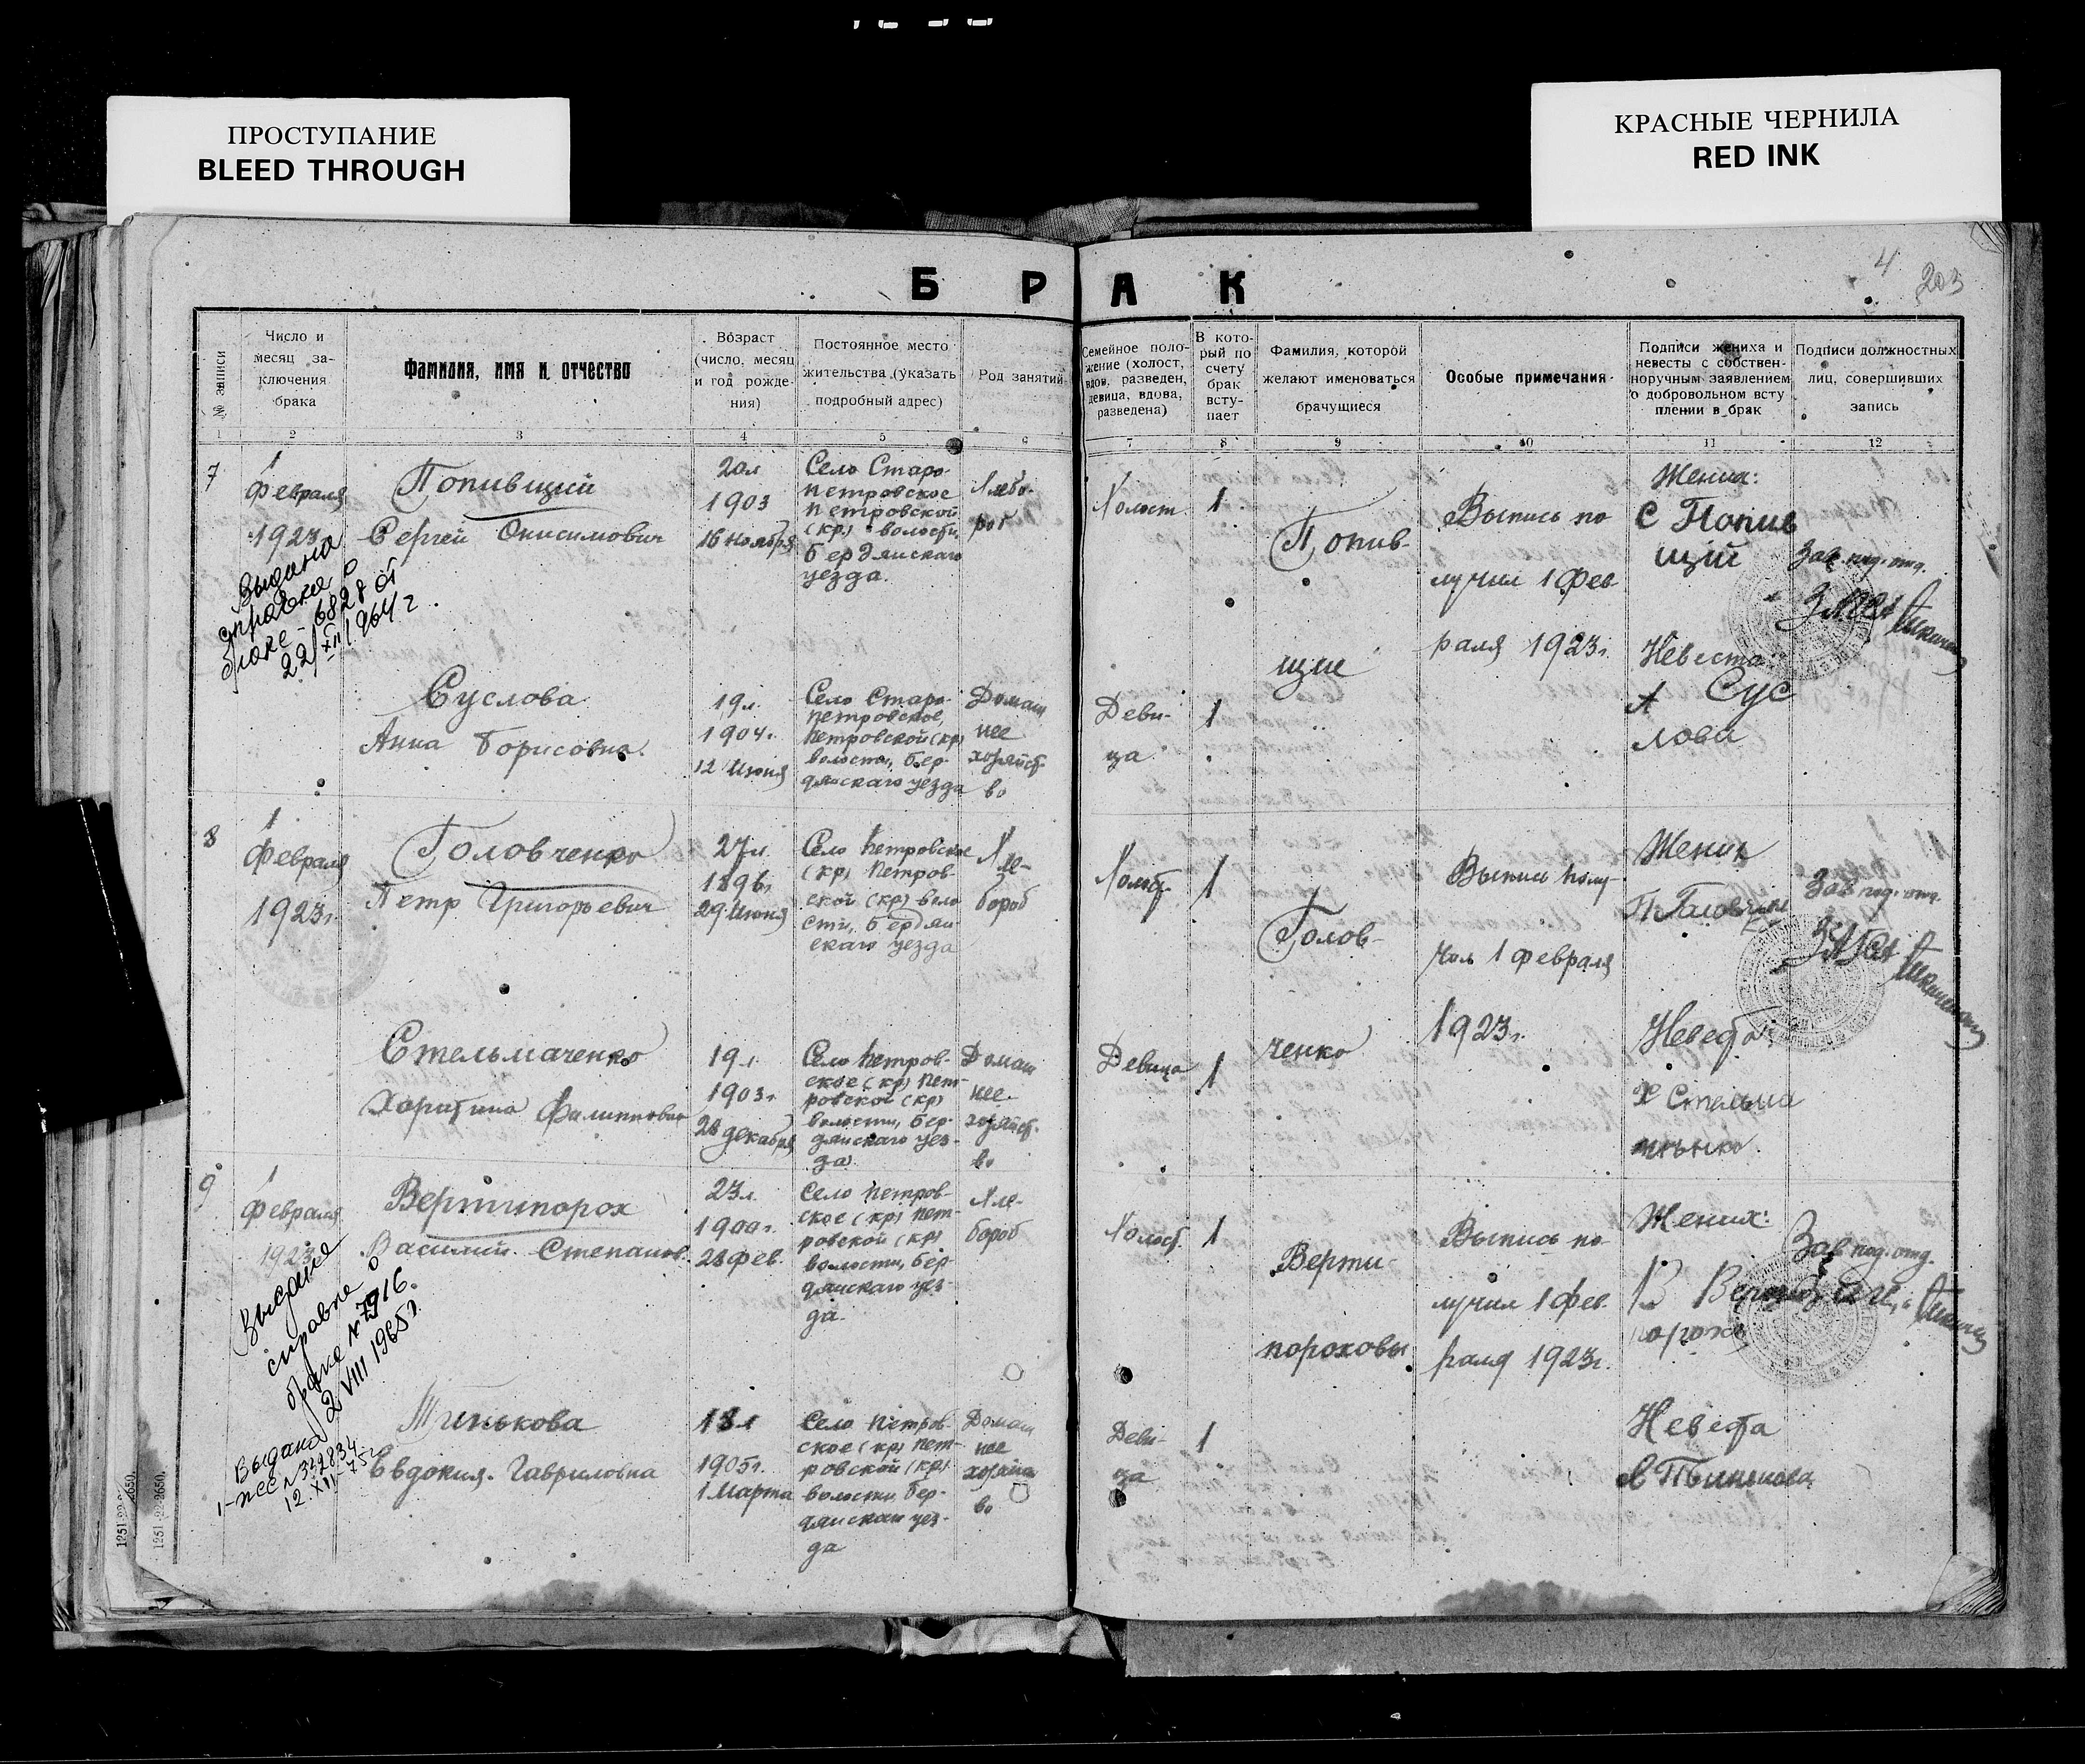 ПРОСТУПАНИЕ
BLEED THROUGH
КРАСНЫЕ ЧЕРНИЛА
RED INK
4
203
БРАК
№ записи
Число и
месяц за-
ключения
брака
Фамилия, имя и отчество
Возраст
(число, месяц
и год рожде-
ния)
Постоянное место
жительства (указать
подробный адрес)
Род занятий
Семейное поло-
жение (холост,
вдов, разведен,
девица, вдова,
разведена)
В кото-
рый по
счету
брак
всту-
пает
Фамилия, которой
желают именоваться
брачущиеся
Особые примечания
Подписи жениха и
невесты с собствен-
норучным заявлением
о добровольном всту
плении в брак
Подписи должностных
лиц, совершивших
запись
1 2 3 4 5 6 7 8 9 10 11 12
7
1
Февраля
1923
Выдана
справка о
браке - 6828 от
22/XII 1964 г
Попивщий
Сергей Онисимович
20л
1903
16 ноября
Село Старо-
петровское
Петровской
(кр) волости,
Бердянскаго
уезда.
Хлебо-
роб
Холост.
1.
Попив-
щие
Выпись по
лучил 1 Фев
раля 1923г.
Жениха:
С Попив
щий
Зав. под. отд.
Суслова
Анна Борисовна.
19л.
1904г.
12 Июня
Село Старо-
петровское,
Петровской (кр)
волости, Бер-
дянскаго уезда
Домаш
нее
хозяйст-
во
Деви-
ца
1
Невеста:
А Сус
лова
8
1
Февраля
1923г.
Головченко
Петр Григорьевич
27л.
1896г
29 Июня
Село Петровское
(кр) Петров-
ской (кр) воло
сти, Бердян
скаго уезда
Хле-
бороб
Холост.
1
Голов-
ченко
Выпись полу-
чил 1 февраля
1923г.
Жених
П. Головченко
Зав под. отд.
Стельмаченко
Харитина Филипповна
19л.
1903г.
28 декабря
Село Петров-
ское (кр) Пет-
ровской (кр)
волости, Бер-
дянскаго уез-
да.
Домаш
нее
хозяйст-
во
Девица
1
Невеста:
Х Стельма
9
1
Февраля
1923
Выдана
справка о
браке № 7916.
2 VIII 1965г.
Вертипорох
Василий Степанов.
23л.
1900г.
28 фев.
Село Петров-
ское (кр) Пет-
ровской (кр)
волости, Бер-
дянскаго уез-
да.
Хле-
бороб
Холост.
1
Верти-
пороховы
Выпись по-
лучил 1 фев.
раля 1923г.
Жених:
Зав под. отд.
Выдана
12. XII-75г
Тинькова
Евдокия Гавриловна
18л
1905г.
1 Марта
Село Петров-
ское (кр) Пет-
ровской (кр)
волости, Бер-
дянскаго уез-
да
Домаш
нее
хозяйст
во
Деви-
ца
1
Невеста
1251-22-2650.
1251-22-2650.